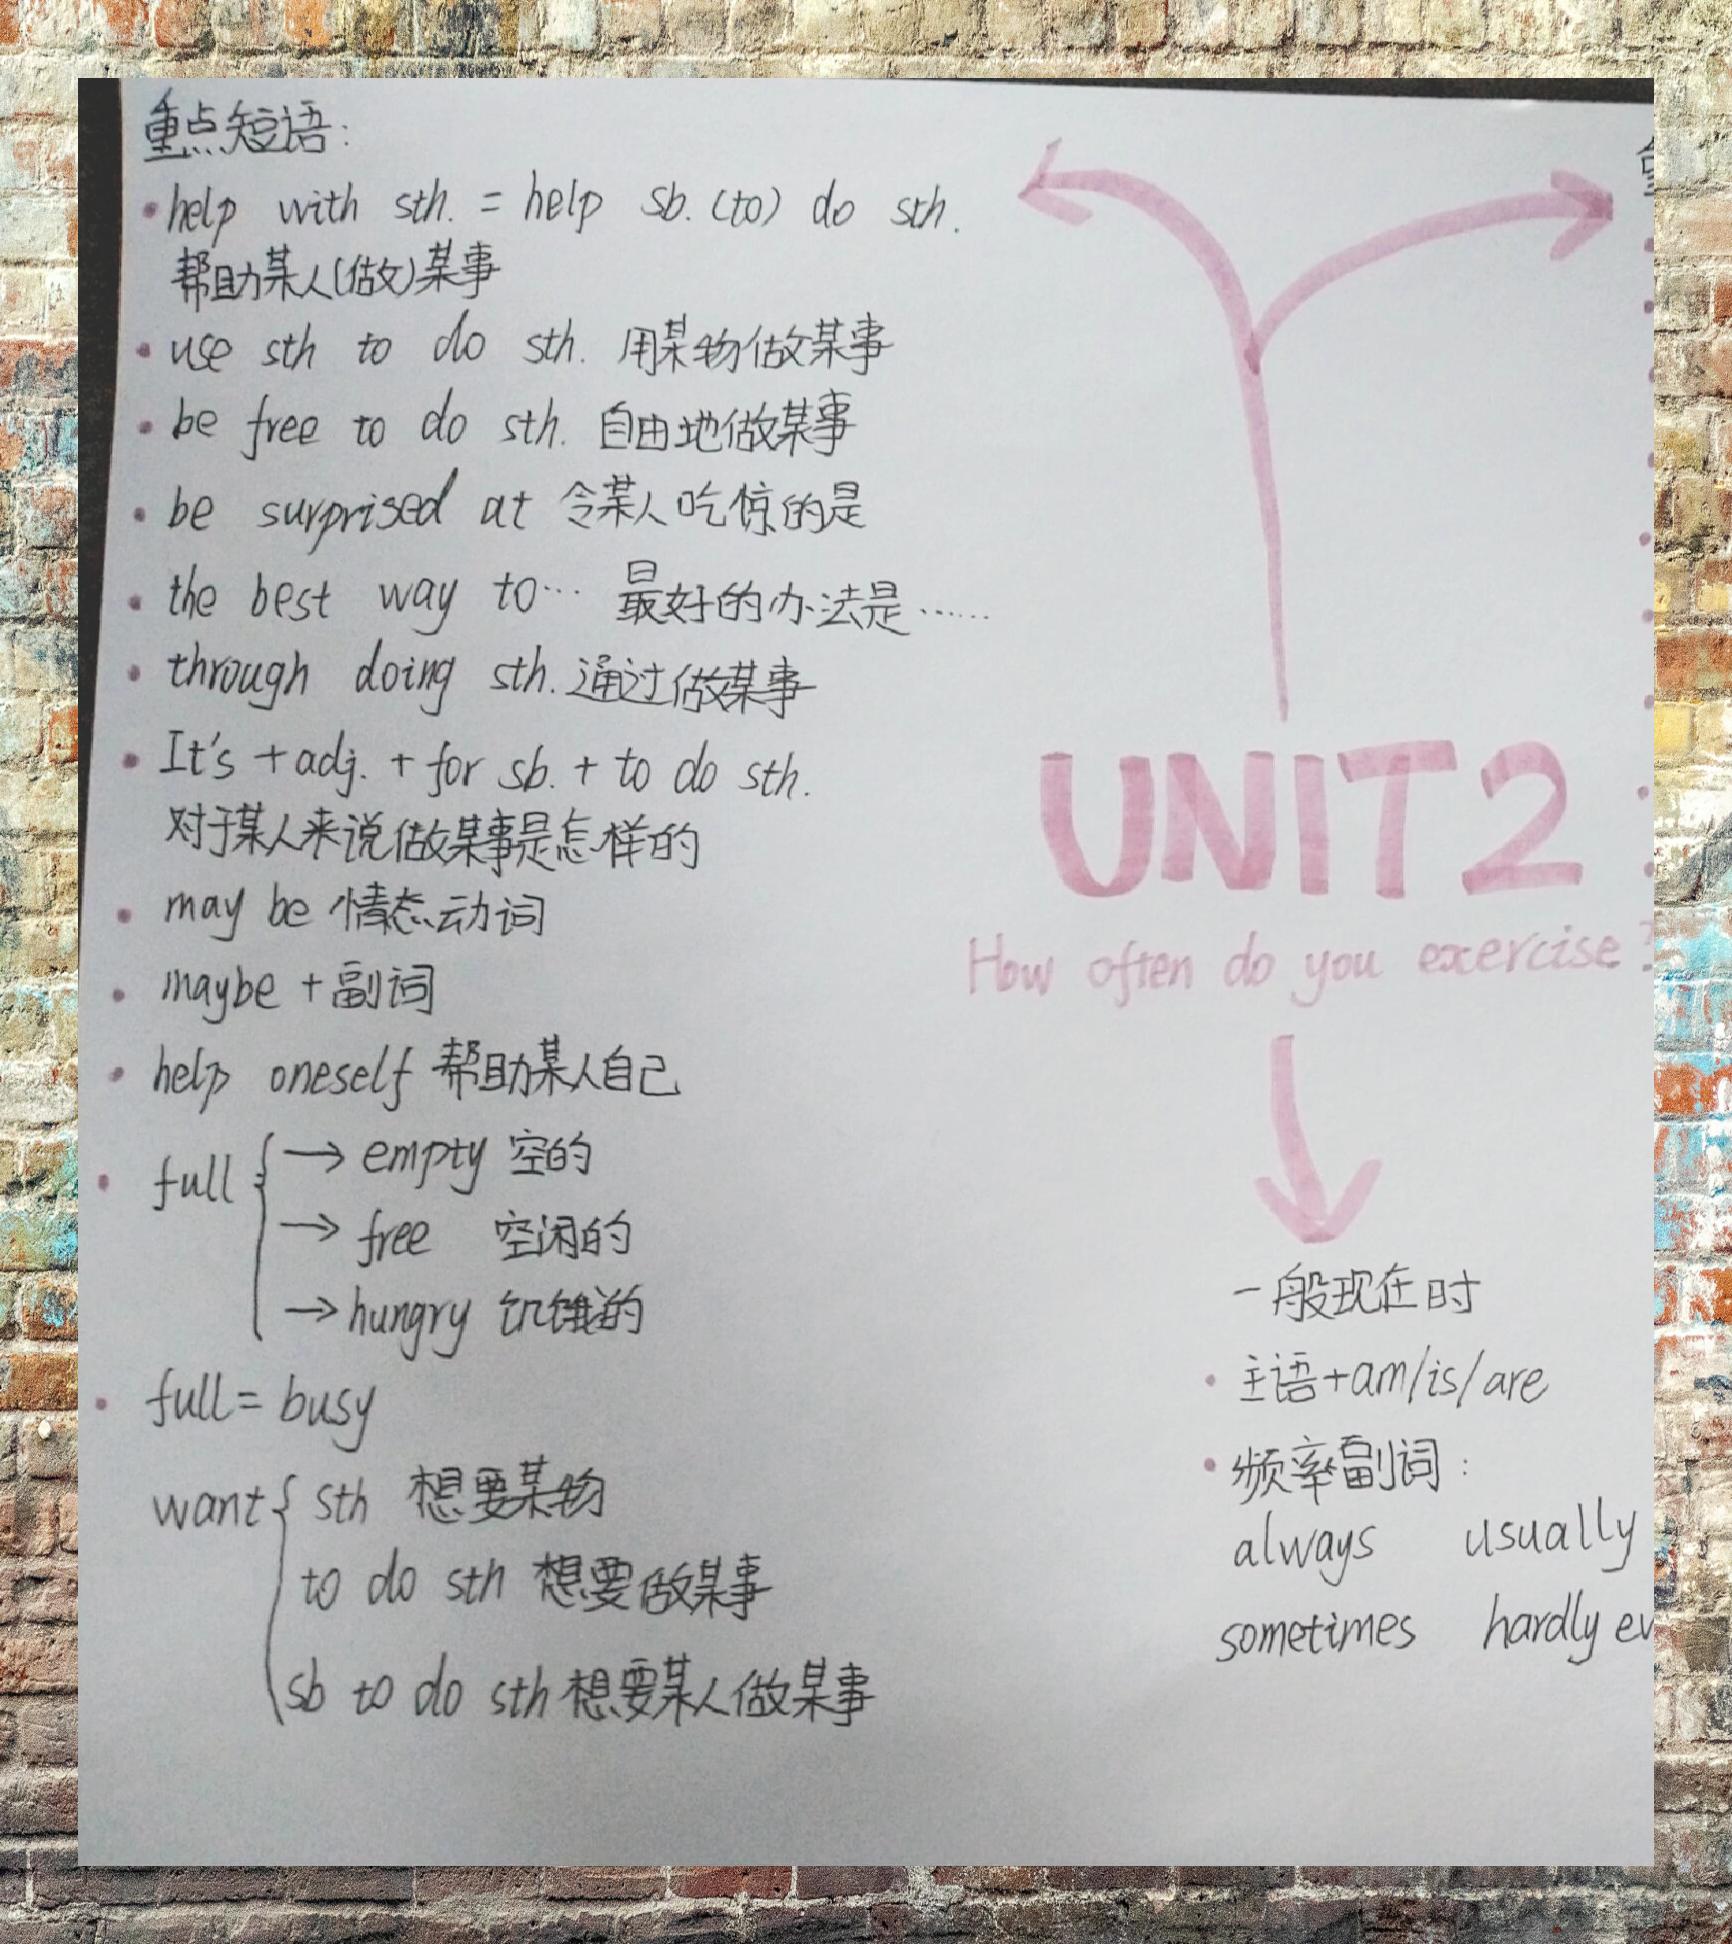 重点短语:
·help with sth. = help sb. (to) do sth.
帮助某人(做)某事
·use sth to do sth. 用某物做某事
·be free to do sth. 自由地做某事
·be surprised at 令某人吃惊的是
·the best way to… 最好的办法是……
·through doing sth. 通过做某事
·It's + adj. + for sb. + to do sth.
对于某人来说做某事是怎样的
·may be 情态动词
·maybe + 副词
·help oneself 帮助某人自己
·full { → empty 空的
→ free 空闲的
→ hungry 饥饿的
·full = busy
want { sth 想要某物
to do sth 想要做某事
sb to do sth 想要某人做某事
UNIT2
How often do you exercise?
一般现在时
·主语+am/is/are
·频率副词:
always usually
sometimes hardly